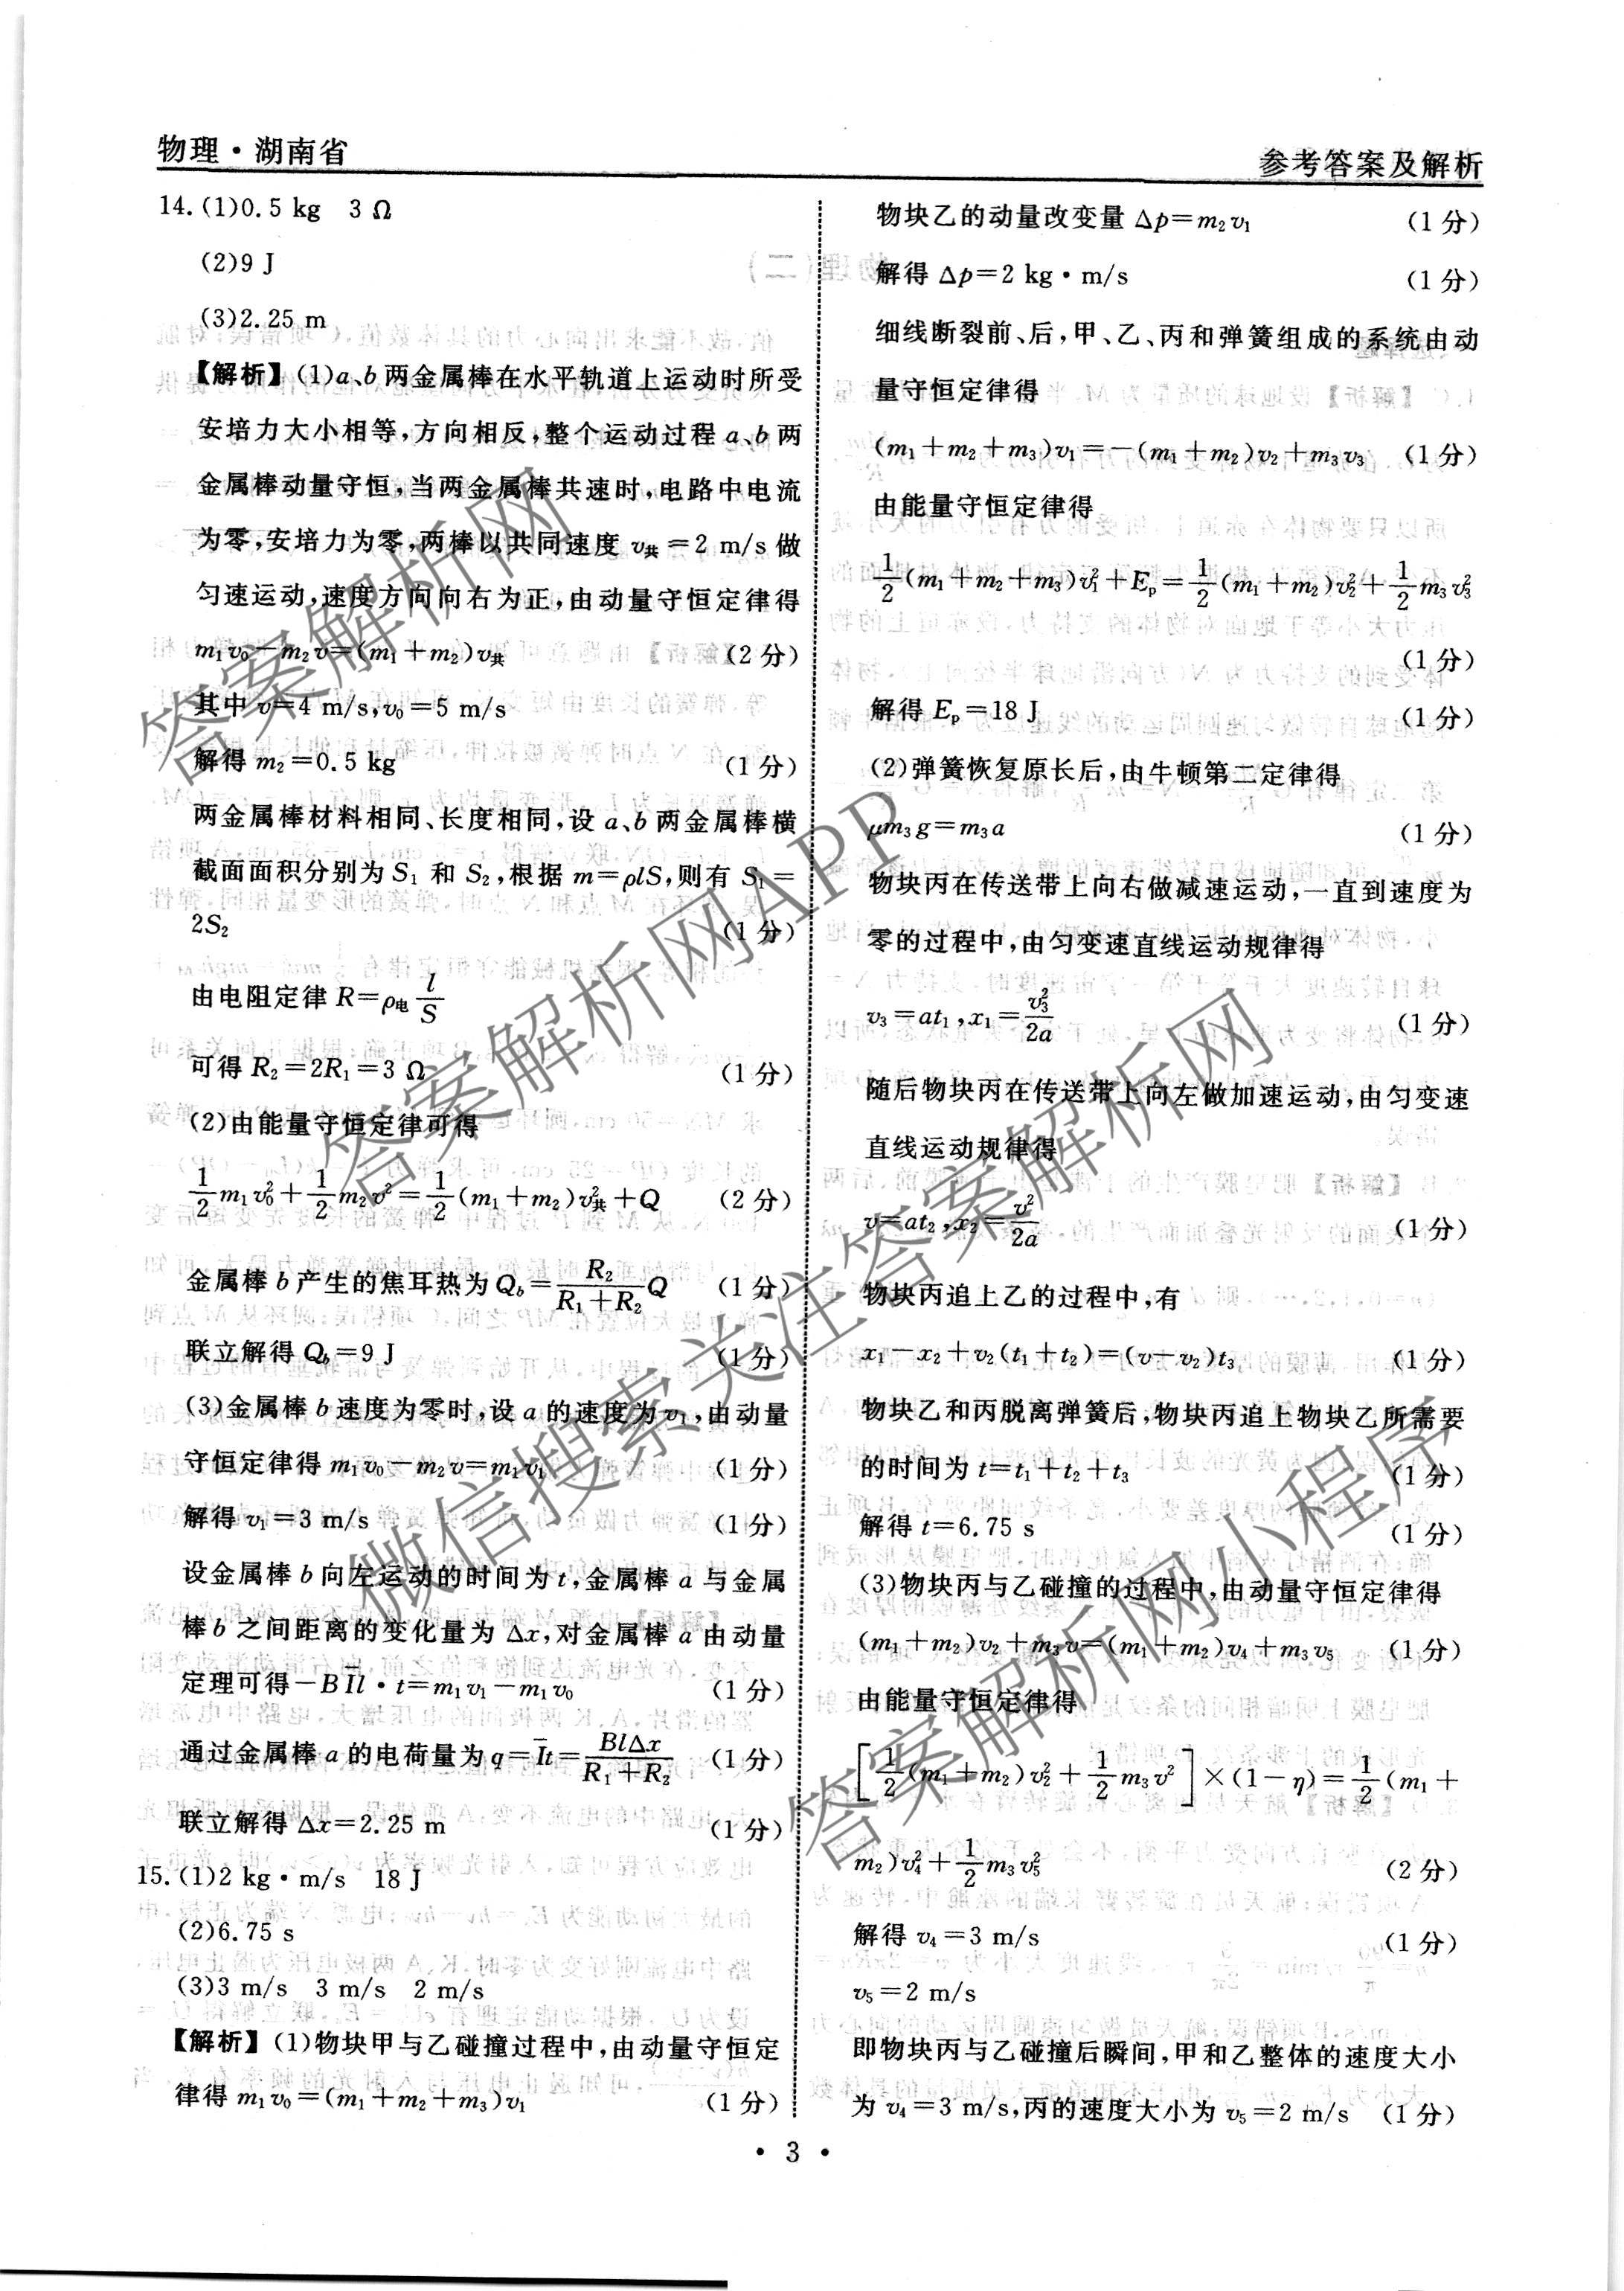 物理·湖南省
参考答案及解析
14.(1)0.5 kg　3 Ω
(2)9 J
(3)2.25 m
【解析】(1)a、b两金属棒在水平轨道上运动时所受
安培力大小相等,方向相反,整个运动过程a、b两
金属棒动量守恒,当两金属棒共速时,电路中电流
为零,安培力为零,两棒以共同速度 v共=2 m/s做
匀速运动,速度方向向右为正,由动量守恒定律得
m₁v₀-m₂v=(m₁+m₂)v共 (2分)
其中 v=4 m/s,v₀=5 m/s
解得 m₂=0.5 kg (1分)
两金属棒材料相同、长度相同,设a、b两金属棒横
截面面积分别为S₁ 和 S₂,根据 m=ρlS,则有 S₁=
2S₂ (1分)
由电阻定律 R=ρ电 l/S
可得 R₂=2R₁=3 Ω (1分)
(2)由能量守恒定律可得
1/2 m₁v₀²+1/2 m₂v²=1/2(m₁+m₂)v共²+Q (2分)
金属棒b产生的焦耳热为 Q_b=R₂/(R₁+R₂) Q (1分)
联立解得 Q_b=9 J (1分)
(3)金属棒b速度为零时,设a的速度为v₁,由动量
守恒定律得 m₁v₀-m₂v=m₁v₁ (1分)
解得 v₁=3 m/s (1分)
设金属棒b向左运动的时间为t,金属棒a与金属
棒b之间距离的变化量为 Δx,对金属棒a由动量
定理可得-BI̅l·t=m₁v₁-m₁v₀ (1分)
通过金属棒a的电荷量为 q=I̅t=BlΔx/(R₁+R₂) (1分)
联立解得 Δx=2.25 m (1分)
15.(1)2 kg·m/s　18 J
(2)6.75 s
(3)3 m/s　3 m/s　2 m/s
【解析】(1)物块甲与乙碰撞过程中,由动量守恒定
律得 m₁v₀=(m₁+m₂+m₃)v₁ (1分)
物块乙的动量改变量 Δp=m₂v₁ (1分)
解得 Δp=2 kg·m/s (1分)
细线断裂前、后,甲、乙、丙和弹簧组成的系统由动
量守恒定律得
(m₁+m₂+m₃)v₁=-(m₁+m₂)v₂+m₃v₃ (1分)
由能量守恒定律得
1/2(m₁+m₂+m₃)v₁²+Eₚ=1/2(m₁+m₂)v₂²+1/2 m₃v₃²
(1分)
解得 Eₚ=18 J (1分)
(2)弹簧恢复原长后,由牛顿第二定律得
μm₃g=m₃a (1分)
物块丙在传送带上向右做减速运动,一直到速度为
零的过程中,由匀变速直线运动规律得
v₃=at₁,x₁=v₃²/2a (1分)
随后物块丙在传送带上向左做加速运动,由匀变速
直线运动规律得
v=at₂,x₂=v²/2a (1分)
物块丙追上乙的过程中,有
x₁-x₂+v₂(t₁+t₂)=(v-v₂)t₃ (1分)
物块乙和丙脱离弹簧后,物块丙追上物块乙所需要
的时间为 t=t₁+t₂+t₃ (1分)
解得 t=6.75 s (1分)
(3)物块丙与乙碰撞的过程中,由动量守恒定律得
(m₁+m₂)v₂+m₃v=(m₁+m₂)v₄+m₃v₅ (1分)
由能量守恒定律得
[1/2(m₁+m₂)v₂²+1/2 m₃v²]×(1-η)=1/2(m₁+
m₂)v₄²+1/2 m₃v₅² (2分)
解得 v₄=3 m/s (1分)
v₅=2 m/s
即物块丙与乙碰撞后瞬间,甲和乙整体的速度大小
为 v₄=3 m/s,丙的速度大小为 v₅=2 m/s (1分)
· 3 ·
答案解析网
答案解析网APP
微信搜索关注答案解析网
答案解析网小程序